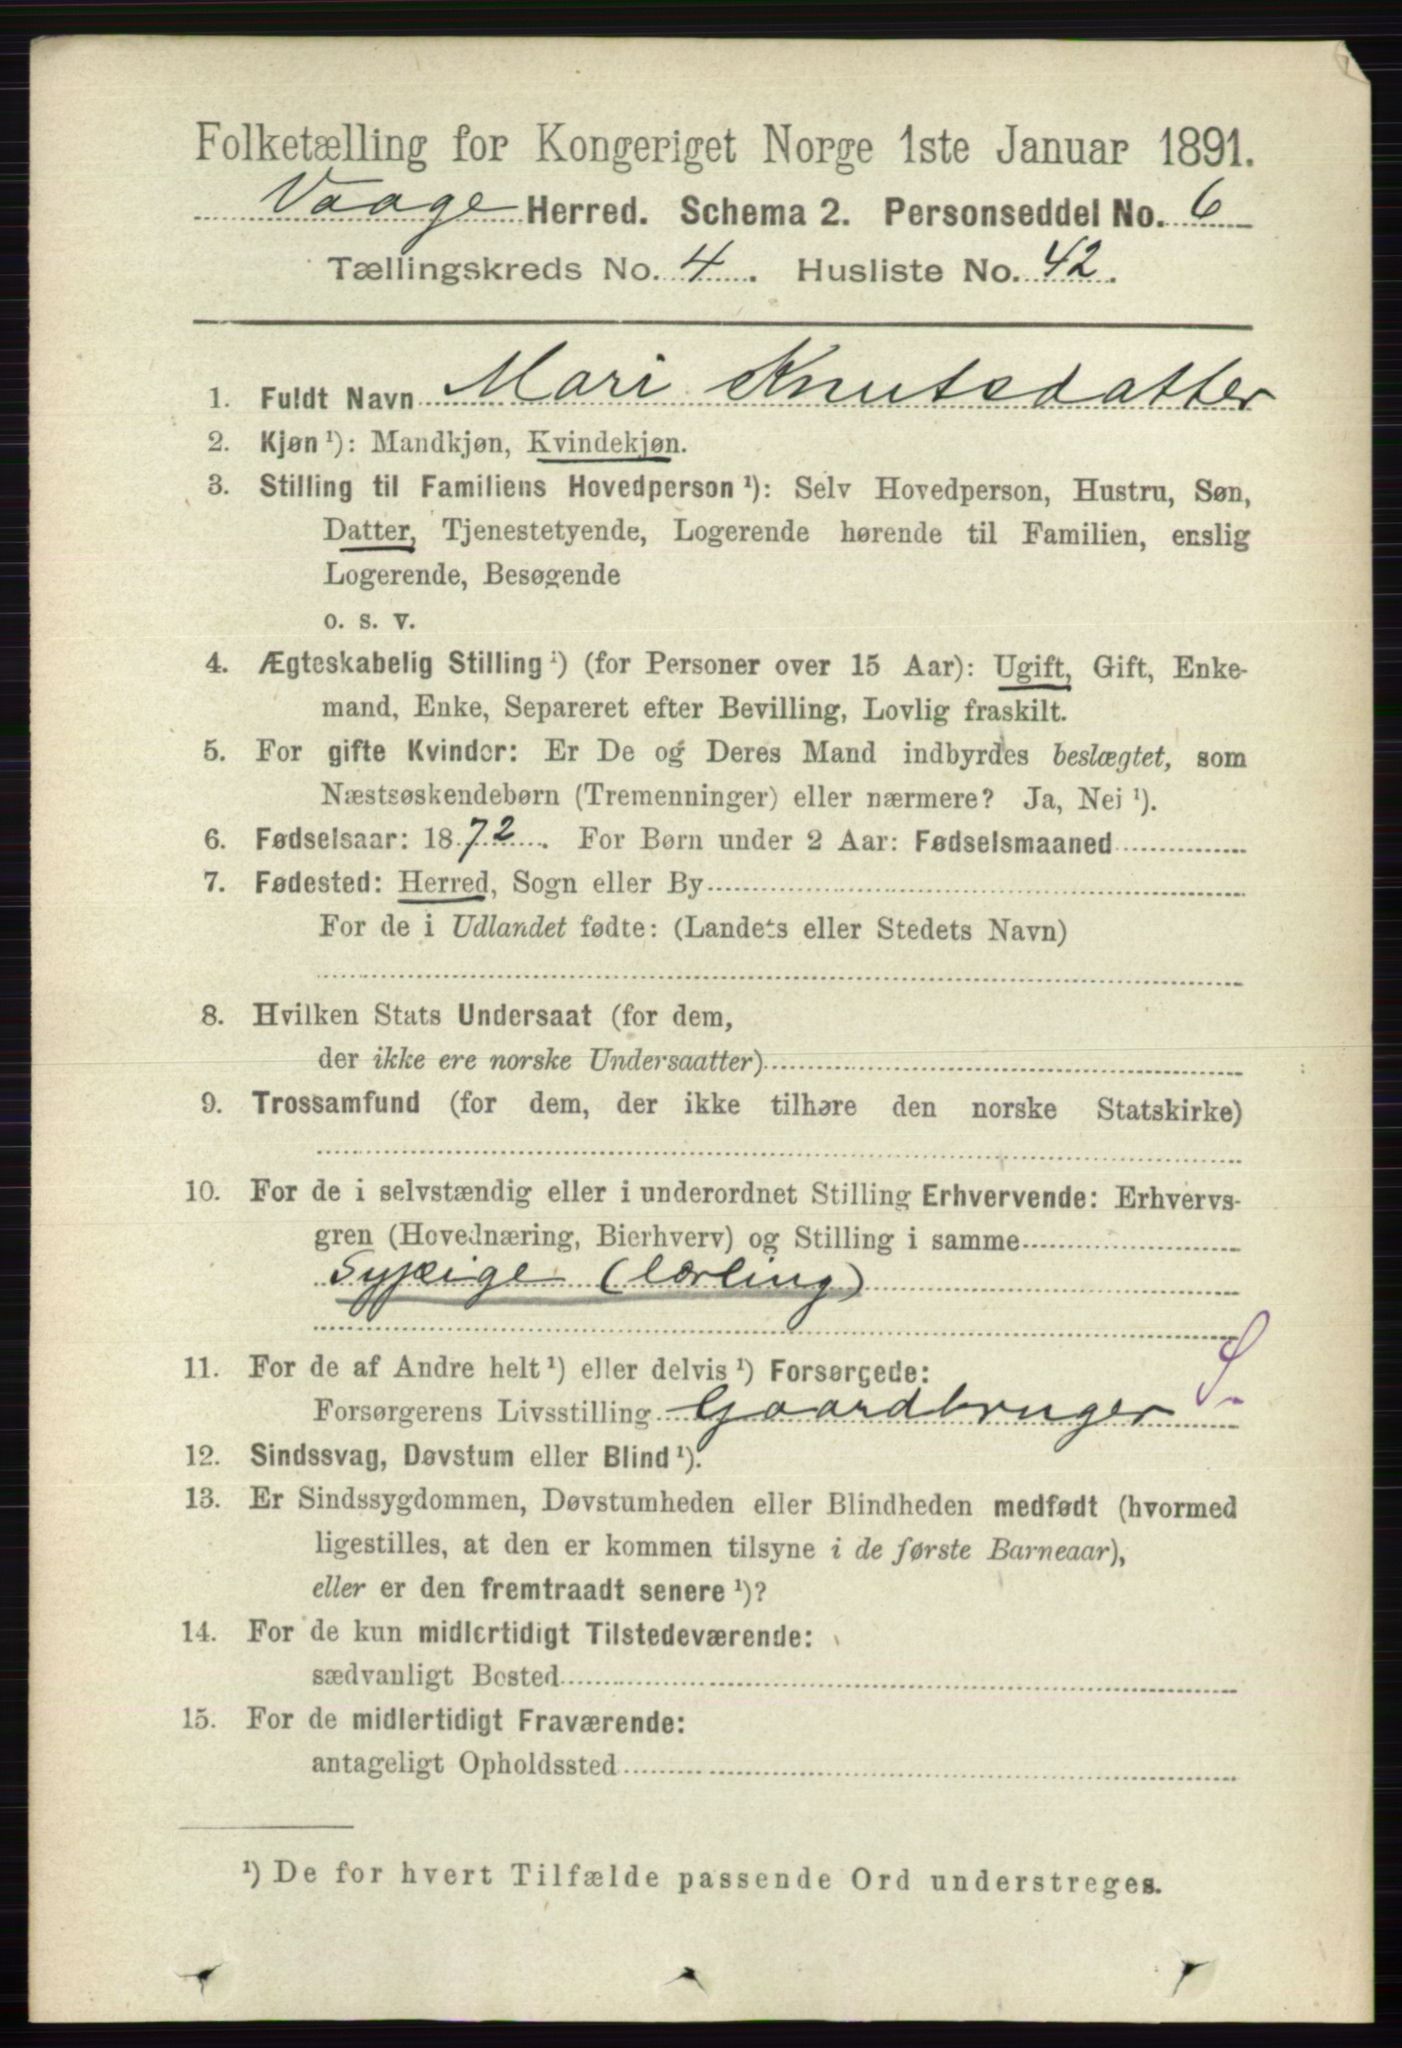 Folketælling for Kongeriget Norge 1ste Januar 1891.
Vaage Herred. Schema 2. Personseddel No. 6
Tællingskreds No. 4. Husliste No. 42.
1. Fuldt Navn Mari Knutsdatter
2. Kjøn ¹): Mandkjøn, Kvindekjøn.
3. Stilling til Familiens Hovedperson ¹): Selv Hovedperson, Hustru, Søn,
Datter, Tjenestetyende, Logerende hørende til Familien, enslig
Logerende, Besøgende
o. s. v.
4. Ægteskabelig Stilling ¹) (for Personer over 15 Aar): Ugift, Gift, Enke-
mand, Enke, Separeret efter Bevilling, Lovlig fraskilt.
5. For gifte Kvinder: Er De og Deres Mand indbyrdes beslægtet, som
Næstsøskendebørn (Tremenninger) eller nærmere? Ja, Nei ¹).
6. Fødselsaar: 1872. For Børn under 2 Aar: Fødselsmaaned
7. Fødested: Herred, Sogn eller By
For de i Udlandet fødte: (Landets eller Stedets Navn)
8. Hvilken Stats Undersaat (for dem,
der ikke ere norske Undersaatter)
9. Trossamfund (for dem, der ikke tilhøre den norske Statskirke)
10. For de i selvstændig eller i underordnet Stilling Erhvervende: Erhvervs-
gren (Hovednæring, Bierhverv) og Stilling i samme
Sypige (lærling)
11. For de af Andre helt ¹) eller delvis ¹) Forsørgede:
Forsørgerens Livsstilling Gaardbruger
12. Sindssvag, Døvstum eller Blind ¹).
13. Er Sindssygdommen, Døvstumheden eller Blindheden medfødt (hvormed
ligestilles, at den er kommen tilsyne i de første Barneaar),
eller er den fremtraadt senere ¹)?
14. For de kun midlertidigt Tilstedeværende:
sædvanligt Bosted
15. For de midlertidigt Fraværende:
antageligt Opholdssted
¹) De for hvert Tilfælde passende Ord understreges.